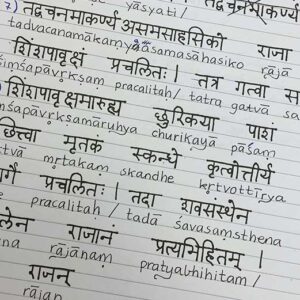 yāsyati /
7) तद्वचनमाकर्ण्य असमसाहसिको राजा
tadvacanamākarṇyāsamasāhasiko rājā
शिंशपावृक्षं प्रचलितः। तत्र गत्वा स
śiṃśapāvṛkṣaṃ pracalitaḥ/ tatra gatvā sa
शिंशपावृक्षमारुह्य छुरिकया पाशं
śiṃśapāvṛkṣamāruhya churikayā pāśaṃ
छित्त्वा मृतकं स्कन्धे कृत्वोत्तीर्य
tvā mṛtakaṃ skandhe kṛtvottīrya
प्रचलितः। तदा शवसंस्थेन
pracalitaḥ / tadā śavasaṃsthena
लेन राजानं प्रत्यभिहितम्।
na rājānaṃ pratyabhihitam /
राजन्
rājan